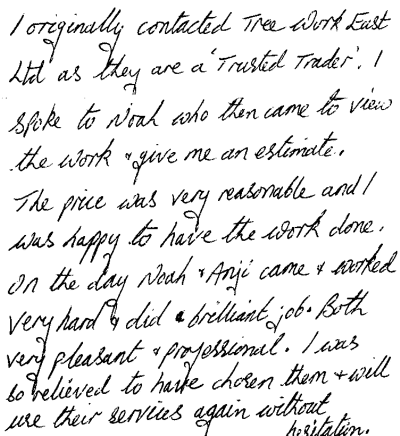 I originally contacted Tree Work East
Ltd as they are a 'Trusted Trader'. I
spoke to Noah who then came to view
the work & give me an estimate.
The price was very reasonable and I
was happy to have the work done.
On the day Noah & Anji came & worked
very hard & did a brilliant job. Both
very pleasant & professional. I was
so relieved to have chosen them & will
use their services again without
hesitation.